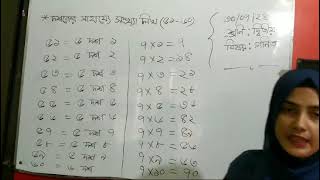 * দশকের মাধ্যমে সংখ্যা লিখ (৫১-৬০)
৫১ = ৫ দশ ১
৫২ = ৫ দশ ২
৫৩ = ৫ দশ ৩
৫৪ = ৫ দশ ৪
৫৫ = ৫ দশ ৫
৫৬ = ৫ দশ ৬
৫৭ = ৫ দশ ৭
৫৮ = ৫ দশ ৮
৫৯ = ৫ দশ ৯
৬০ = ৬ দশ
৭×১ = ৭
৭×২ = ১৪
৭×৩ = ২১
৭×৪ = ২৮
৭×৫ = ৩৫
৭×৬ = ৪২
৭×৮ = ৫৬
৭×৯ = ৬৩
৭×১০ = ৭০
শ্রেণি : দ্বিতীয়
বিষয় : গণিত